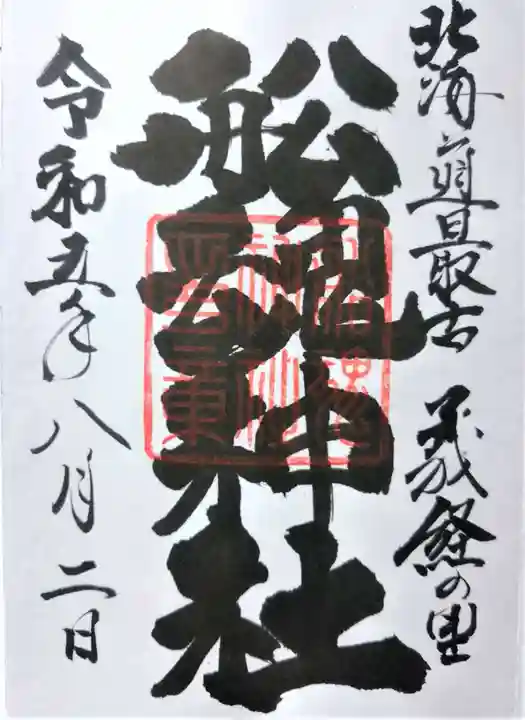 北海道最古 義経の里
船魂神社
令和五年八月二日